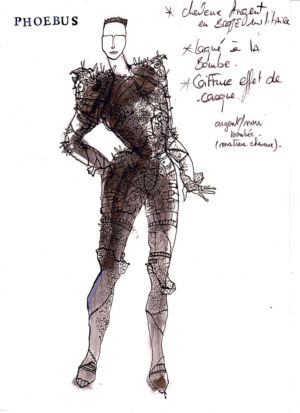 PHOEBUS
* cheveux Argent
en BROSSE militaire
* Laqué à la
Bombe.
* Coiffure effet de
casque.
argent/noir
bombée.
(matière cheveux).